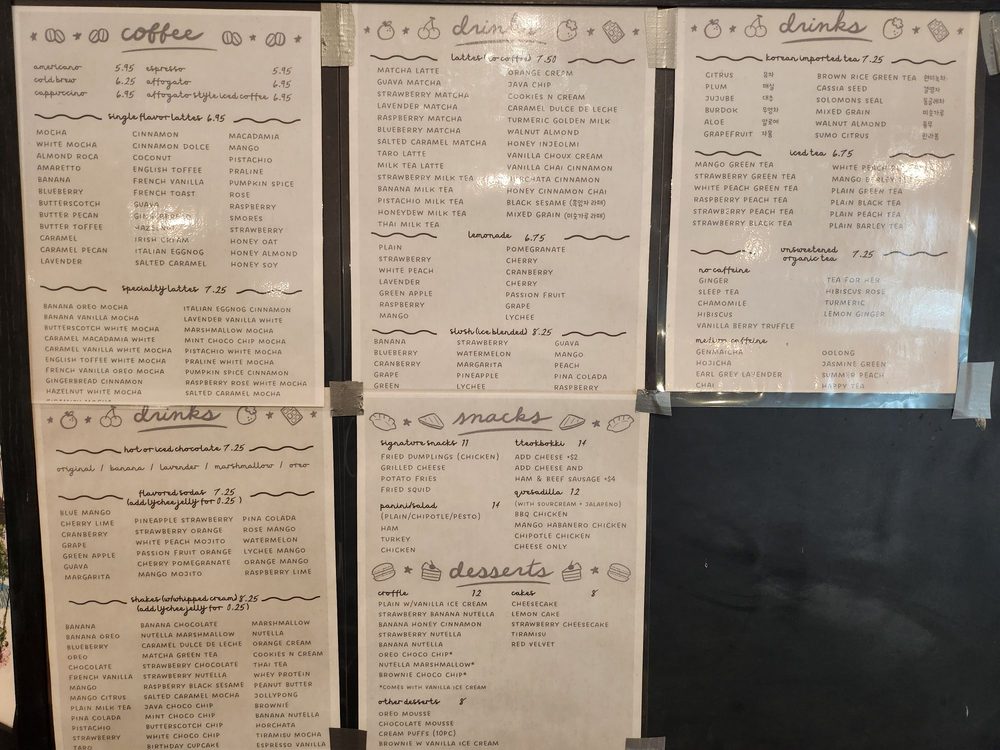 coffee
americano 5.95 espresso 5.95
cold brew 6.25 affogato 6.95
cappuccino 6.95 affogato style iced coffee 6.95
single flavor lattes 6.95
MOCHA CINNAMON MACADAMIA
WHITE MOCHA CINNAMON DOLCE MANGO
ALMOND ROCA COCONUT PISTACHIO
AMARETTO ENGLISH TOFFEE PRALINE
BANANA FRENCH VANILLA PUMPKIN SPICE
BLUEBERRY FRENCH TOAST ROSE
BUTTERSCOTCH GUAVA RASPBERRY
BUTTER PECAN SMORES
BUTTER TOFFEE HAZELNUT STRAWBERRY
CARAMEL IRISH CREAM HONEY OAT
CARAMEL PECAN ITALIAN EGGNOG HONEY ALMOND
LAVENDER SALTED CARAMEL HONEY SOY
specialty lattes 7.25
BANANA OREO MOCHA ITALIAN EGGNOG CINNAMON
BANANA VANILLA MOCHA LAVENDER VANILLA WHITE
BUTTERSCOTCH WHITE MOCHA MARSHMALLOW MOCHA
CARAMEL MACADAMIA WHITE MINT CHOCO CHIP MOCHA
CARAMEL VANILLA WHITE MOCHA PISTACHIO WHITE MOCHA
ENGLISH TOFFEE WHITE MOCHA PRALINE WHITE MOCHA
FRENCH VANILLA OREO MOCHA PUMPKIN SPICE CINNAMON
GINGERBREAD CINNAMON RASPBERRY ROSE WHITE MOCHA
HAZELNUT WHITE MOCHA SALTED CARAMEL MOCHA
drinks
lattes (no coffee) 7.50
MATCHA LATTE ORANGE CREAM
GUAVA MATCHA JAVA CHIP
STRAWBERRY MATCHA COOKIES N CREAM
LAVENDER MATCHA CARAMEL DULCE DE LECHE
RASPBERRY MATCHA TURMERIC GOLDEN MILK
BLUEBERRY MATCHA WALNUT ALMOND
SALTED CARAMEL MATCHA HONEY INJEOLMI
TARO LATTE VANILLA CHOUX CREAM
MILK TEA LATTE VANILLA CHAI CINNAMON
STRAWBERRY MILK TEA HORCHATA CINNAMON
BANANA MILK TEA HONEY CINNAMON CHAI
PISTACHIO MILK TEA BLACK SESAME (흑임자 라떼)
HONEYDEW MILK TEA MIXED GRAIN (미숫가루 라떼)
THAI MILK TEA
lemonade 6.75
PLAIN POMEGRANATE
STRAWBERRY CHERRY
WHITE PEACH CRANBERRY
LAVENDER CHERRY
GREEN APPLE PASSION FRUIT
RASPBERRY GRAPE
MANGO LYCHEE
slush (ice blended) 8.25
BANANA STRAWBERRY GUAVA
BLUEBERRY WATERMELON MANGO
CRANBERRY MARGARITA PEACH
GRAPE PINEAPPLE PINA COLADA
GREEN LYCHEE RASPBERRY
drinks
korean imported tea 7.25
CITRUS 유자 BROWN RICE GREEN TEA 현미녹차
PLUM 매실 CASSIA SEED 결명자
JUJUBE 대추 SOLOMONS SEAL 둥굴레차
BURDOK 우엉차 MIXED GRAIN 미숫가루
ALOE 알로에 WALNUT ALMOND 율무
GRAPEFRUIT 자몽 SUMO CITRUS 한라봉
iced tea 6.75
MANGO GREEN TEA WHITE PEACH
STRAWBERRY GREEN TEA MANGO BARLEY TEA
WHITE PEACH GREEN TEA PLAIN GREEN TEA
RASPBERRY PEACH TEA PLAIN BLACK TEA
STRAWBERRY PEACH TEA PLAIN PEACH TEA
STRAWBERRY BLACK TEA PLAIN BARLEY TEA
unsweetened
organic tea 7.25
no caffeine
GINGER TEA FOR HER
SLEEP TEA HIBISCUS ROSE
CHAMOMILE TURMERIC
HIBISCUS LEMON GINGER
VANILLA BERRY TRUFFLE
medium caffeine
GENMAICHA OOLONG
HOJICHA JASMINE GREEN
EARL GREY LAVENDER SUMMER PEACH
CHAI HAPPY TEA
drinks
hot or iced chocolate 7.25
original / banana / lavender / marshmallow / oreo
flavored sodas 7.25
(add lychee jelly for 0.25)
BLUE MANGO PINEAPPLE STRAWBERRY PINA COLADA
CHERRY LIME STRAWBERRY ORANGE ROSE MANGO
CRANBERRY WHITE PEACH MOJITO WATERMELON
GRAPE PASSION FRUIT ORANGE LYCHEE MANGO
GREEN APPLE CHERRY POMEGRANATE ORANGE MANGO
GUAVA MANGO MOJITO RASPBERRY LIME
MARGARITA
shakes (w/whipped cream) 8.25
(add lychee jelly for 0.25)
BANANA BANANA CHOCOLATE MARSHMALLOW
BANANA OREO NUTELLA MARSHMALLOW NUTELLA
BLUEBERRY CARAMEL DULCE DE LECHE ORANGE CREAM
OREO MATCHA GREEN TEA COOKIES N CREAM
CHOCOLATE STRAWBERRY CHOCOLATE THAI TEA
FRENCH VANILLA STRAWBERRY NUTELLA WHEY PROTEIN
MANGO RASPBERRY BLACK SESAME PEANUT BUTTER
MANGO CITRUS SALTED CARAMEL MOCHA JOLLYPONG
PLAIN MILK TEA JAVA CHOCO CHIP BROWNIE
PINA COLADA MINT CHOCO CHIP BANANA NUTELLA
PISTACHIO BUTTERSCOTCH CHIP HORCHATA
STRAWBERRY WHITE CHOCO CHIP TIRAMISU MOCHA
TARO BIRTHDAY CUPCAKE ESPRESSO VANILLA
snacks
signature snacks 11 tteokbokki 14
FRIED DUMPLINGS (CHICKEN) ADD CHEESE +$2
GRILLED CHEESE ADD CHEESE AND
POTATO FRIES HAM & BEEF SAUSAGE +$4
FRIED SQUID quesadilla 12
panini/salad 14 (WITH SOURCREAM + JALAPENO)
(PLAIN/CHIPOTLE/PESTO) BBQ CHICKEN
HAM MANGO HABANERO CHICKEN
TURKEY CHIPOTLE CHICKEN
CHICKEN CHEESE ONLY
desserts
croffle 12 cakes 8
PLAIN W/VANILLA ICE CREAM CHEESECAKE
STRAWBERRY BANANA NUTELLA LEMON CAKE
BANANA HONEY CINNAMON STRAWBERRY CHEESECAKE
STRAWBERRY NUTELLA TIRAMISU
BANANA NUTELLA RED VELVET
OREO CHOCO CHIP*
NUTELLA MARSHMALLOW*
BROWNIE CHOCO CHIP*
*COMES WITH VANILLA ICE CREAM
other desserts 8
OREO MOUSSE
CHOCOLATE MOUSSE
CREAM PUFFS (10PC)
BROWNIE W VANILLA ICE CREAM